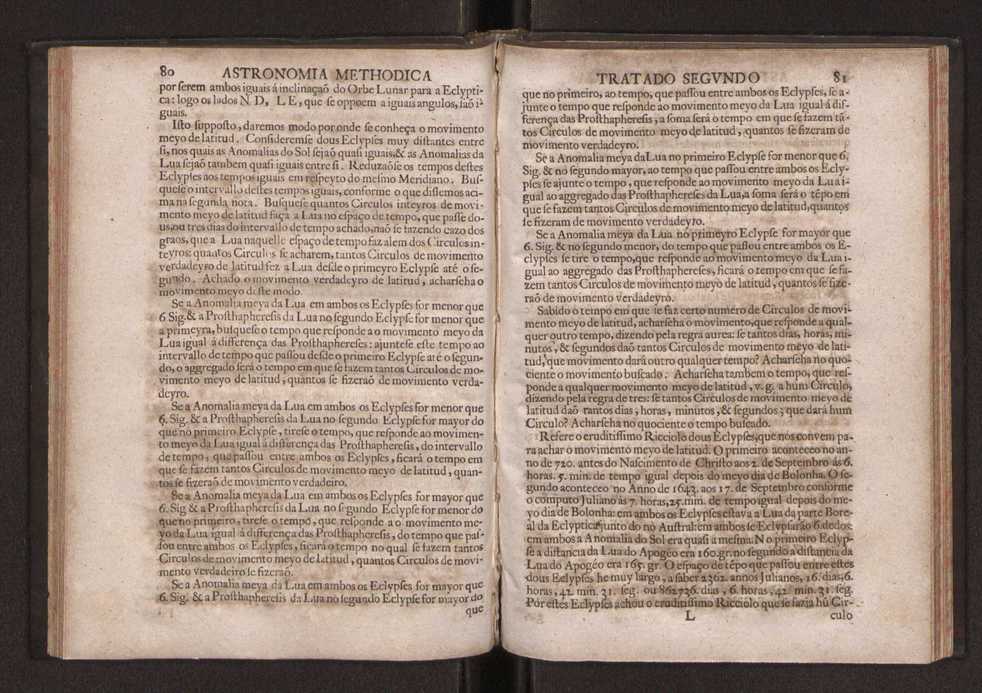 80 ASTRONOMIA METHODICA
por ſerem ambos iguais á inclinaçaõ do Orbe Lunar para a Eclypti-
ca: logo os lados N D, L E, que ſe oppoem a iguais angulos, ſaõ i-
guais.
Iſto ſuppoſto, daremos modo por onde ſe conheça o movimento
meyo de latitud. Conſideremſe dous Eclypſes muy diſtantes entre
ſi, nos quais as Anomalias do Sol ſejaõ quaſi iguais,& as Anomalias da
Lua ſejaõ tambem quaſi iguais entre ſi. Reduzaõſe os tempos deſtes
Eclypſes aos tempos iguais em reſpeyto do meſmo Meridiano. Buſ-
queſe o intervallo deſtes tempos iguais, conforme o que diſſemos aci-
ma na ſegunda nota. Buſqueſe quantos Circulos inteyros de movi-
mento meyo de latitud faça a Lua no eſpaço de tempo, que paſſe do-
us,ou tres dias do intervallo de tempo achado,naõ ſe fazendo cazo dos
graos, que a Lua naquelle eſpaço de tempo faz alem dos Circulos in-
teyros: quantos Circulos ſe acharem, tantos Circulos de movimento
verdadeyro de latitud fez a Lua deſde o primeyro Eclypſe até o ſe-
gundo. Achado o movimento verdadeyro de latitud, acharſeha o
movimento meyo deſte modo.
Se a Anomalia meya da Lua em ambos os Eclypſes for menor que
6 Sig.& a Proſthaphereſis da Lua no ſegundo Eclypſe for menor que
a primeyra, buſqueſe o tempo que reſponde ao movimento meyo da
Lua igual á differença das Proſthaphereſes: ajunteſe eſte tempo ao
intervallo de tempo que paſſou deſde o primeiro Eclypſe até o ſegun-
do, o aggregado ſerá o tempo em que ſe fazem tantos Circulos de mo-
vimento meyo de latitud, quantos ſe fizeraõ de movimento verda-
deyro.
Se a Anomalia meya da Lua em ambos os Eclypſes for menor que
6. Sig. & a Proſthapheresis da Lua no ſegundo Eclypſe for mayor do
que no primeiro Eclypſe, tireſe o tempo, que reſponde ao movimen-
to meyo da Lua igual á differença das Proſthaphereſis, do intervallo
de tempo, que paſſou entre ambos os Eclypſes, ficará o tempo em
que ſe fazem tantos Circulos de movimento meyo de latitud, quan-
tos ſe fizeraõ de movimento verdadeiro.
Se a Anomalia meya da Lua em ambos os Eclypſes for mayor que
6. Sig & a Proſthaphereſis da Lua no ſegundo Eclypſe for menor do
que no primeiro, tireſe o tempo, que reſponde ao movimento me-
yo da Lua igual á differença das Proſthaphereſis, do tempo que paſ-
ſou entre ambos os Eclypſes, ficará o tempo no qual ſe fazem tantos
Circulos de movimento meyo de latitud, quantos Circulos de movi-
mento verdadeiro ſe fizeraõ.
Se a Anomalia meya da Lua em ambos os Eclypſes for mayor que
6. Sig. & a Proſthaphereſis da Lua no ſegundo Eclypſe for mayor do
que
TRATADO SEGVNDO 81
que no primeiro, ao tempo, que paſſou entre ambos os Eclypſes, ſe a-
junte o tempo que reſponde ao movimento meyo da Lua igual á dif-
ferença das Proſthaphereſis, a ſoma ſerá o tempo em que ſe fazem tã-
tos Circulos de movimento meyo de latitud, quantos ſe fizeram de
movimento verdadeyro.
Se a Anomalia meya da Lua no primeiro Eclypſe for menor que 6.
Sig. & no ſegundo mayor, ao tempo que paſſou entre ambos os Ecly-
pſes ſe ajunte o tempo, que reſponde ao movimento meyo da Lua i-
gual ao aggregado das Proſthaphereſes da Lua,a ſoma ſerá o tẽpo em
que ſe fazem tantos Circulos de movimento meyo de latitud,quantos
ſe fizeram de movimento verdadeyro.
Se a Anomalia meya da Lua no primeyro Eclypſe for mayor que
6. Sig. & no ſegundo menor, do tempo que paſſou entre ambos os E-
clypſes ſe tire o tempo,que reſponde ao movimento meyo da Lua i-
gual ao aggregado das Proſthaphereſes, ficará o tempo em que ſe fa-
zem tantos Circulos de movimento meyo de latitud, quantos ſe fize-
raõ de movimento verdadeyro.
Sabido o tempo em que ſe faz certo numero de Circulos de movi-
mento meyo de latitud, acharſeha o movimento,que reſponde a qual-
quer outro tempo, dizendo pela regra aurea: ſe tantos dias, horas, mi-
nutos, & ſegundos daõ tantos Circulos de movimento meyo de lati-
tud, que movimento dará outro qualquer tempo? Acharſeha no quo-
ciente o movimento buſcado. Acharſeha tambem o tempo, que reſ-
ponde a qualquer movimento meyo de latitud, v. g. a hum Circulo,
dizendo pela regra de tres: ſe tantos Circulos de movimento meyo de
latitud daõ tantos dias, horas, minutos, & ſegundos; que dará hum
Circulo? Acharſeha no quociente o tempo buſcado.
Refere o eruditiſſimo Ricciolo dous Eclypſes,que nos convem pa-
ra achar o movimento meyo de latitud. O primeiro aconteceo no an-
no de 720. antes do Naſcimento de Chriſto aos 2. de Septembro ás 6.
horas. 5. min. de tempo igual depois do meyo dia de Bolonha. O ſe-
gundo aconteceo no Anno de 1643. aos 17. de Septembro conforme
o computo Juliano ás 7. horas,25.min. de tempo igual depois do me-
yo dia de Bolonha: em ambos os Eclypſes eſtava a Lua da parte Bore-
al da Ecyptica junto do nó Auſtral:em ambos ſe Eclypſarão 6.dedos:
em ambos a Anomalia do Sol era quaſi a meſma. No primeiro Eclyp-
ſe a diſtancia da Lua do Apogéo era 160.gr. no ſegundo a diſtancia da
Lua do Apogéo era 165. gr. O eſpaço de tẽpo que paſſou entre eſtes
dous Eclypſes he muy largo, a ſaber 2362. annos Julianos, 16. dias,6.
horas, 42. min. 31. ſeg. ou 862736. dias, 6. horas, 42. min. 31. ſeg.
Por eſtes Eclypſes achou o eruditiſſimo Ricciolo que ſe fazia hũ Cir-
L culo